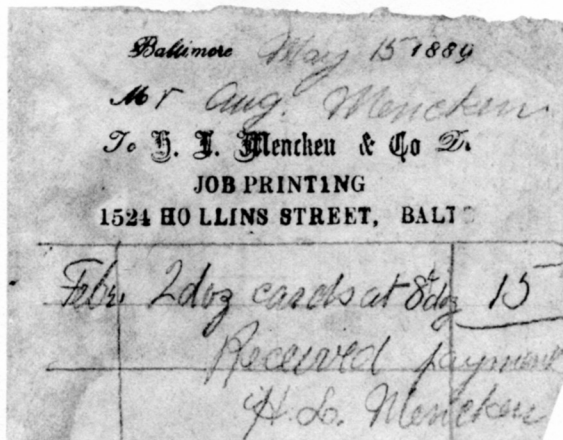 Baltimore May 15 1889
Mr Aug. Mencken
To H. L. Mencken & Co Dr.
JOB PRINTING
1524 HOLLINS STREET, BALTO
Febr. 2 doz cards at 8¢ doz 15
Received payment
H. L. Mencken